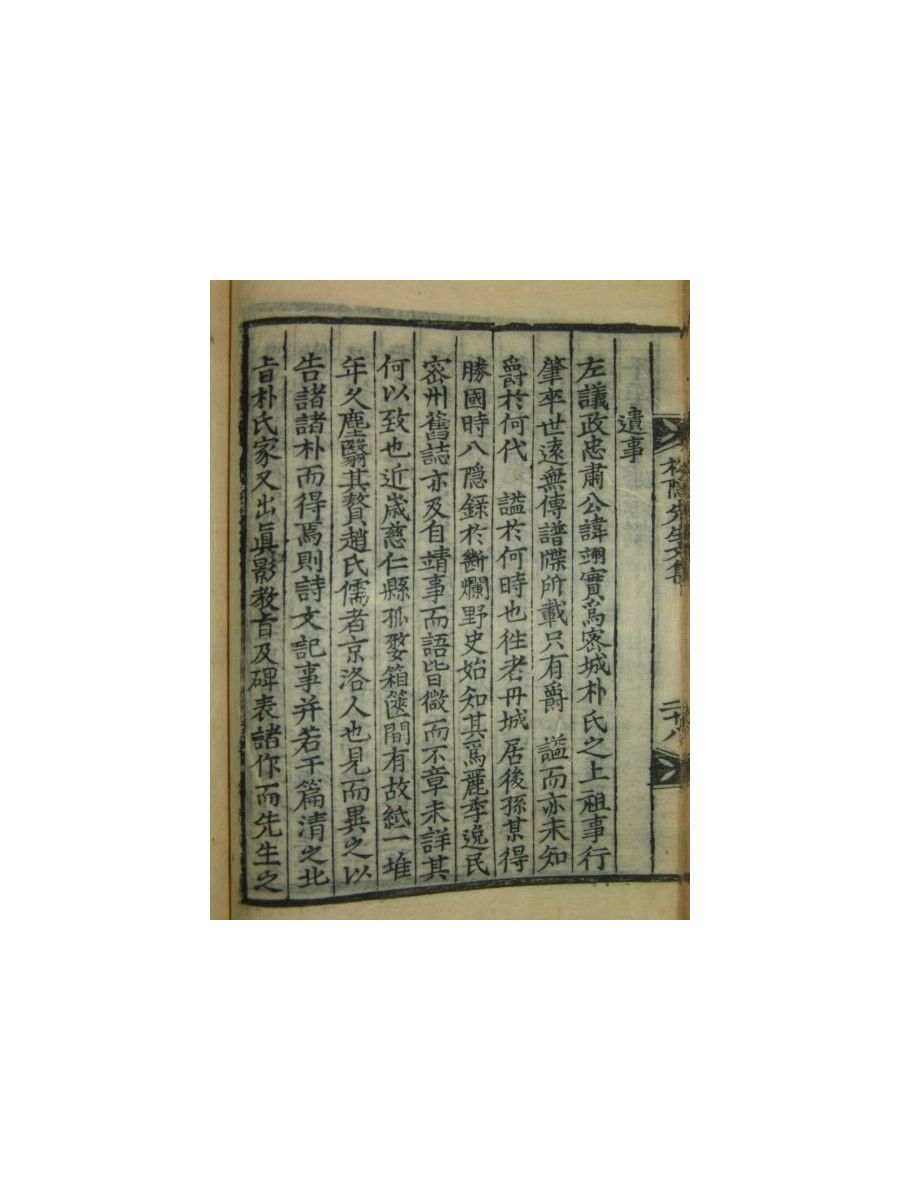 松隱先生文集
二十八
遺事
左議政忠肅公諱翊實爲密城朴氏之上祖事行
肇卒世遠無傳譜牒所載只有爵 諡而亦未知
爵於何代 諡於何時也徃者丹城居後孫某得
勝國時八隱錄於斷爛野史始知其爲麗季逸民
密州舊誌亦及自靖事而語皆微而不章未詳其
何以致也近歲慈仁縣孤嫠箱篋間有故紙一堆
年久塵翳其贅趙氏儒者京洛人也見而異之以
告諸諸朴而得焉則詩文記事并若干篇清之北
旨朴氏家又出眞影敎旨及碑表諸作而先生之